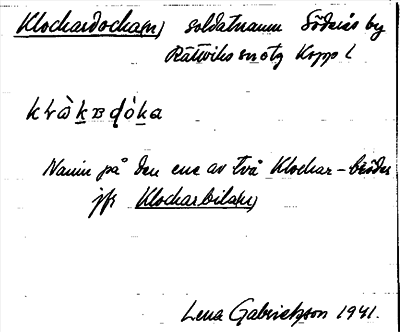 Klockardocka(n) soldatnamn Söderås by
Rättviks sn Kopp l
klàkadóka
Namn på den ene av två Klockar-bröder
jfr Klockarbilan)
Lena Gabrielsson 1941.